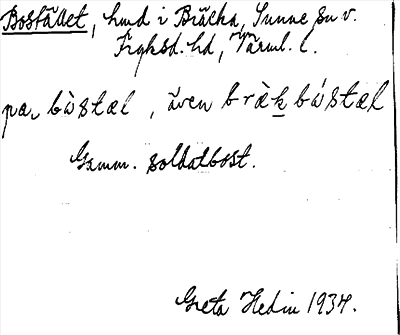 Bostället, hmd i Bräcka, Sunne sn v.
Fryksd. hd, Värml. l.
pa bòstæl, även bræ̀kbóstæl
Gamm. soldatbost.
Greta Hedin 1934.